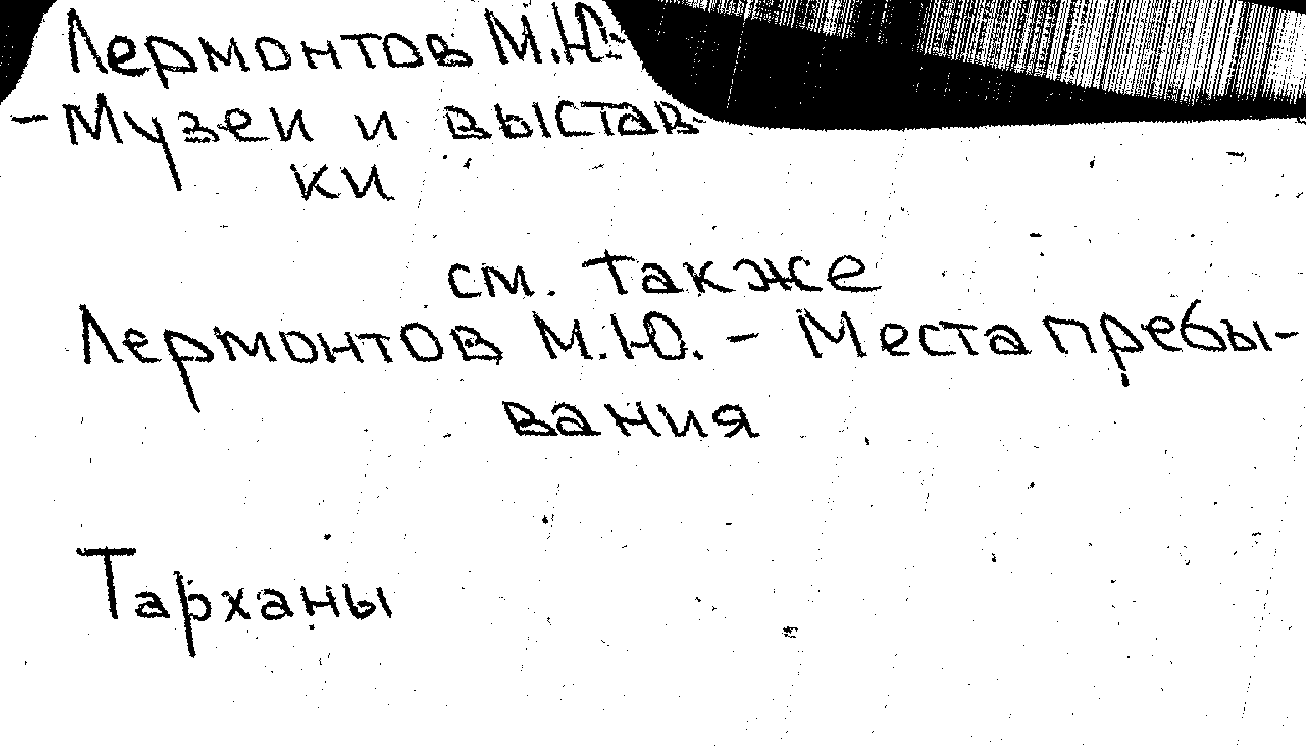 Лермонтов М.Ю.
- Музеи и выстав-
ки
см. также
Лермонтов М.Ю. - Места пребы-
вания
Тарханы